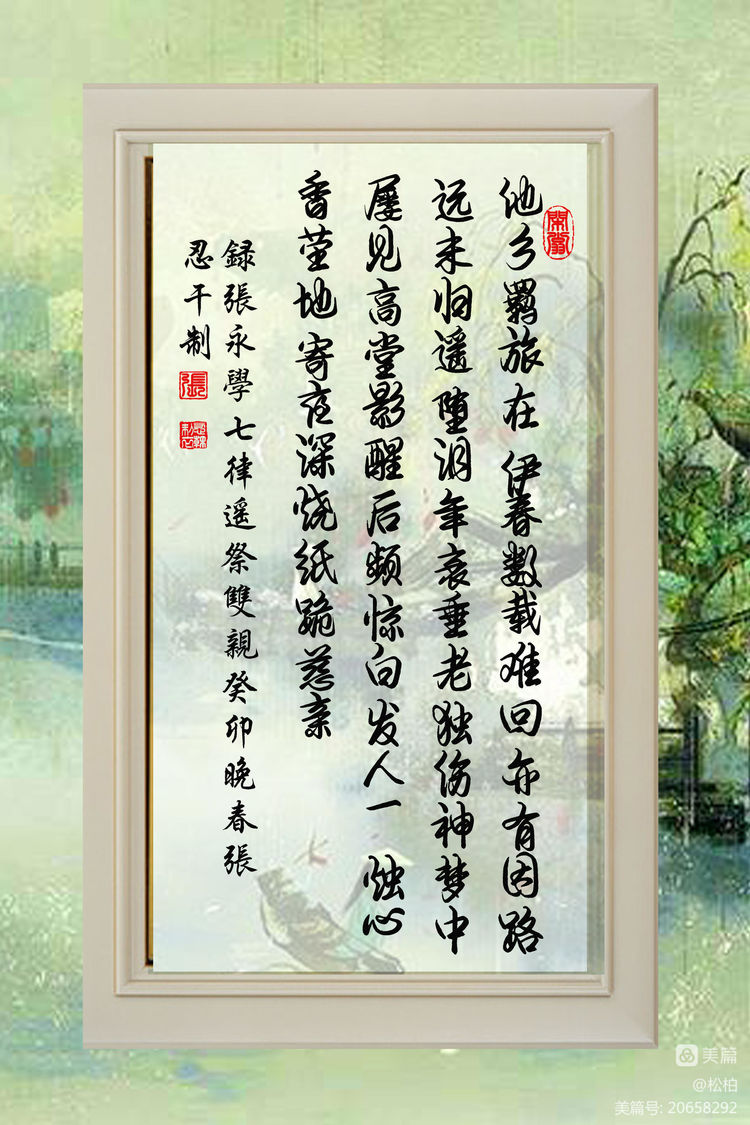 他乡羁旅在伊春数载难回亦有因路
远未归遥堕泪年衰垂老独伤神梦中
屡见高堂影醒后频惊白发人一烛心
香茔地寄夜深烧纸跪慈亲
録張永學七律遥祭雙親癸卯晚春張
忍干制
張
美篇
@松柏
美篇号: 20658292